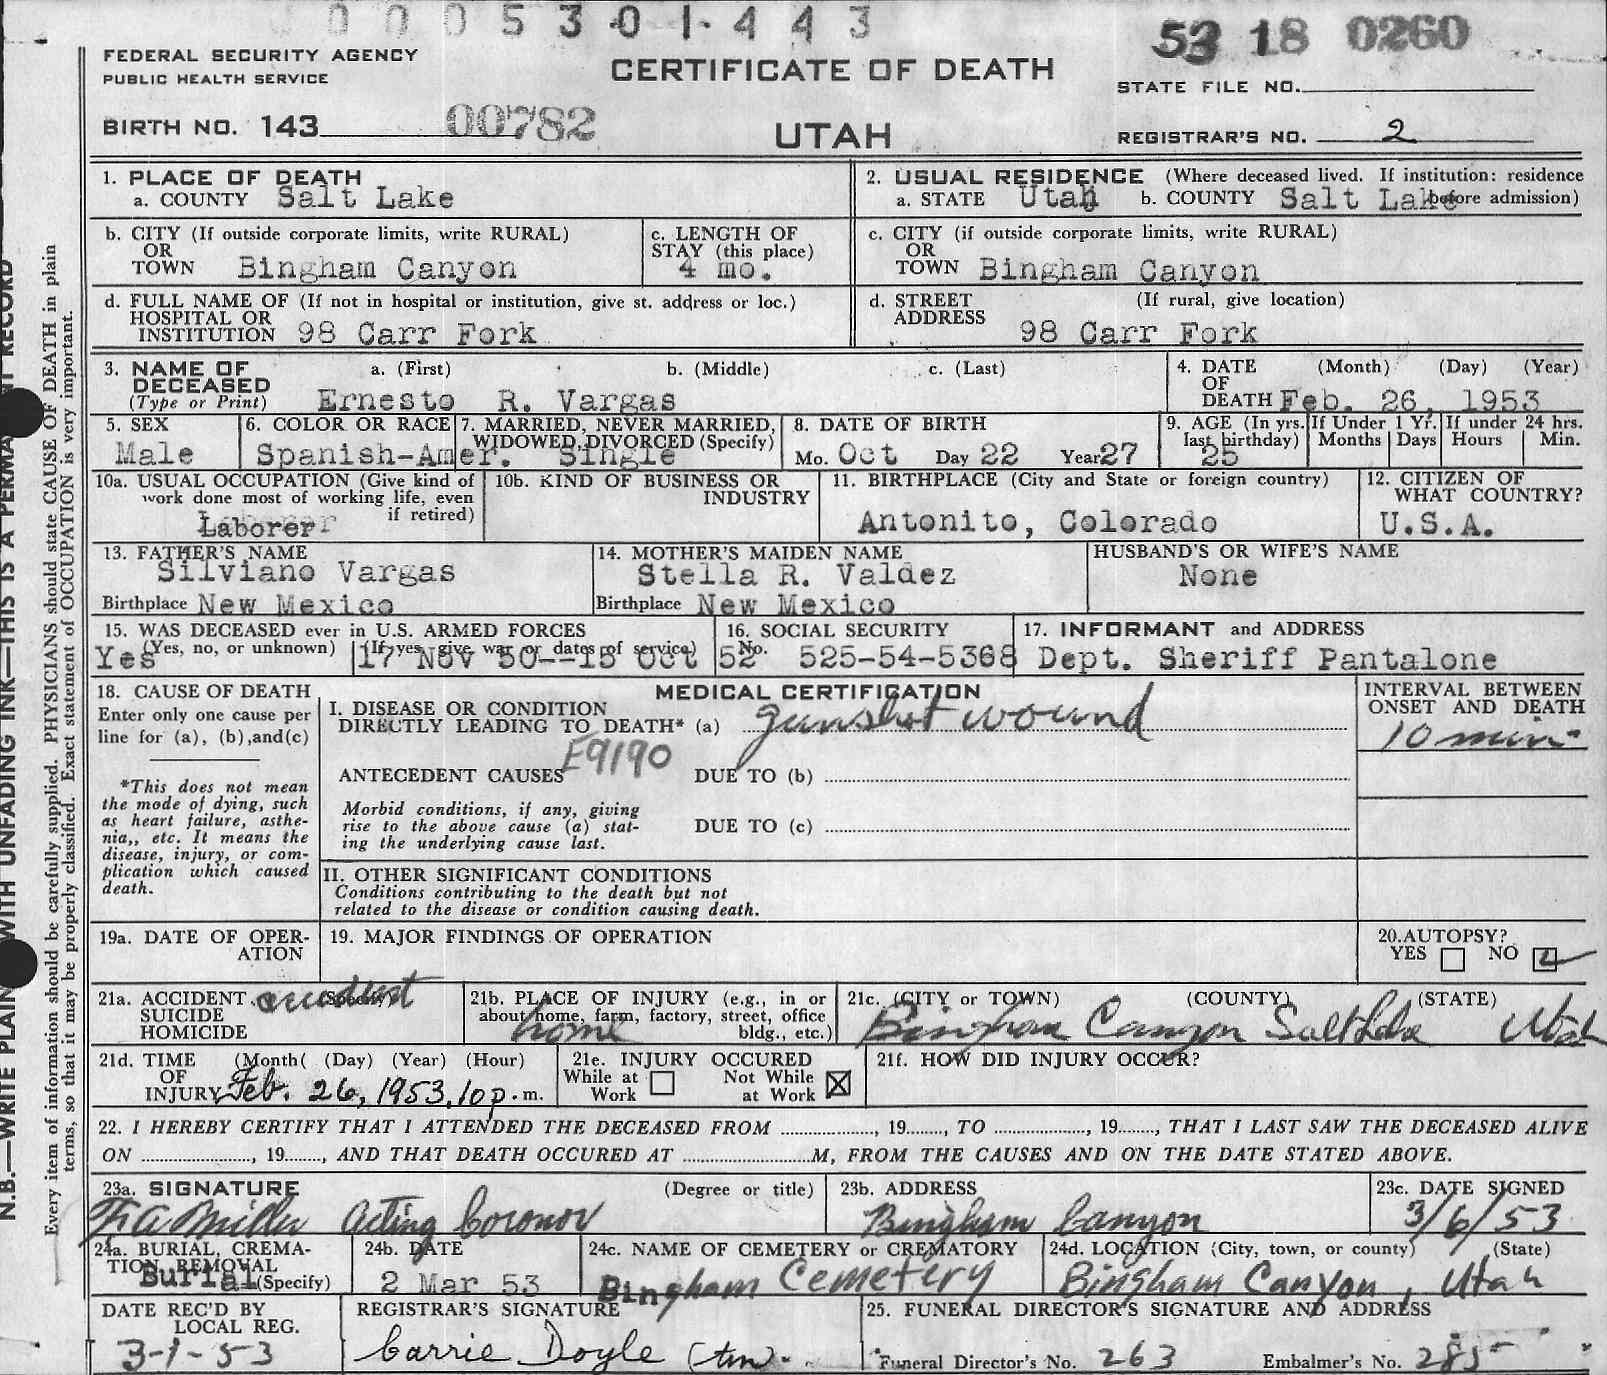 0005301-443
53 18 0260
FEDERAL SECURITY AGENCY
PUBLIC HEALTH SERVICE
CERTIFICATE OF DEATH
STATE FILE NO.
BIRTH NO. 143 00782
UTAH
REGISTRAR'S NO. 2
1. PLACE OF DEATH
a. COUNTY Salt Lake
2. USUAL RESIDENCE (Where deceased lived. If institution: residence before admission)
a. STATE Utah b. COUNTY Salt Lake
b. CITY (If outside corporate limits, write RURAL)
OR
TOWN Bingham Canyon
c. LENGTH OF
STAY (this place)
4 mo.
c. CITY (if outside corporate limits, write RURAL)
OR
TOWN Bingham Canyon
d. FULL NAME OF (If not in hospital or institution, give st. address or loc.)
HOSPITAL OR
INSTITUTION 98 Carr Fork
d. STREET (If rural, give location)
ADDRESS
98 Carr Fork
3. NAME OF a. (First) b. (Middle) c. (Last)
DECEASED
(Type or Print) Ernesto R. Vargas
4. DATE (Month) (Day) (Year)
OF
DEATH Feb. 26, 1953
5. SEX
Male
6. COLOR OR RACE
Spanish-Amer.
7. MARRIED, NEVER MARRIED,
WIDOWED, DIVORCED (Specify)
Single
8. DATE OF BIRTH
Mo. Oct Day 22 Year 27
9. AGE (In yrs. last birthday)
25
If Under 1 Yr.
Months Days
If under 24 hrs.
Hours Min.
10a. USUAL OCCUPATION (Give kind of
work done most of working life, even
if retired)
Laborer
10b. KIND OF BUSINESS OR
INDUSTRY
11. BIRTHPLACE (City and State or foreign country)
Antonito, Colorado
12. CITIZEN OF
WHAT COUNTRY?
U.S.A.
13. FATHER'S NAME
Silviano Vargas
Birthplace New Mexico
14. MOTHER'S MAIDEN NAME
Stella R. Valdez
Birthplace New Mexico
HUSBAND'S OR WIFE'S NAME
None
15. WAS DECEASED ever in U.S. ARMED FORCES
(Yes, no, or unknown) (If yes, give war or dates of service)
Yes 17 Nov 50--15 Oct 52
16. SOCIAL SECURITY
No. 525-54-5368
17. INFORMANT and ADDRESS
Dept. Sheriff Pantalone
18. CAUSE OF DEATH
Enter only one cause per
line for (a), (b), and (c)
*This does not mean
the mode of dying, such
as heart failure, asthe-
nia,, etc. It means the
disease, injury, or com-
plication which caused
death.
MEDICAL CERTIFICATION
I. DISEASE OR CONDITION
DIRECTLY LEADING TO DEATH* (a) gunshot wound
E9190
ANTECEDENT CAUSES DUE TO (b)
Morbid conditions, if any, giving
rise to the above cause (a) stat-
ing the underlying cause last.
DUE TO (c)
II. OTHER SIGNIFICANT CONDITIONS
Conditions contributing to the death but not
related to the disease or condition causing death.
INTERVAL BETWEEN
ONSET AND DEATH
10 min.
19a. DATE OF OPER-
ATION
19. MAJOR FINDINGS OF OPERATION
20. AUTOPSY?
YES NO
21a. ACCIDENT (Specify) accident
SUICIDE
HOMICIDE
21b. PLACE OF INJURY (e.g., in or
about home, farm, factory, street, office
bldg., etc.)
home
21c. (CITY or TOWN) (COUNTY) (STATE)
Bingham Canyon Salt Lake Utah
21d. TIME (Month( (Day) (Year) (Hour)
OF
INJURY Feb. 26, 1953, 10 p. m.
21e. INJURY OCCURED
While at Work Not While at Work
21f. HOW DID INJURY OCCUR?
22. I HEREBY CERTIFY THAT I ATTENDED THE DECEASED FROM ............, 19......, TO ............, 19......, THAT I LAST SAW THE DECEASED ALIVE
ON ............, 19......, AND THAT DEATH OCCURED AT ............M, FROM THE CAUSES AND ON THE DATE STATED ABOVE.
23a. SIGNATURE (Degree or title)
Miller Acting Coronor
23b. ADDRESS
Bingham Canyon
23c. DATE SIGNED
3/6/53
24a. BURIAL, CREMA-
TION, REMOVAL
(Specify) Burial
24b. DATE
2 Mar 53
24c. NAME OF CEMETERY or CREMATORY
Bingham Cemetery
24d. LOCATION (City, town, or county) (State)
Bingham Canyon, Utah
DATE REC'D BY
LOCAL REG.
3-1-53
REGISTRAR'S SIGNATURE
Carrie Doyle
25. FUNERAL DIRECTOR'S SIGNATURE AND ADDRESS
Funeral Director's No. 263 Embalmer's No. 285
N.B.—WRITE PLAIN WITH UNFADING INK—THIS IS A PERMA NT RECORD
Every item of information should be carefully supplied. PHYSICIANS should state CAUSE OF DEATH in plain
terms, so that it may be properly classified. Exact statement of OCCUPATION is very important.